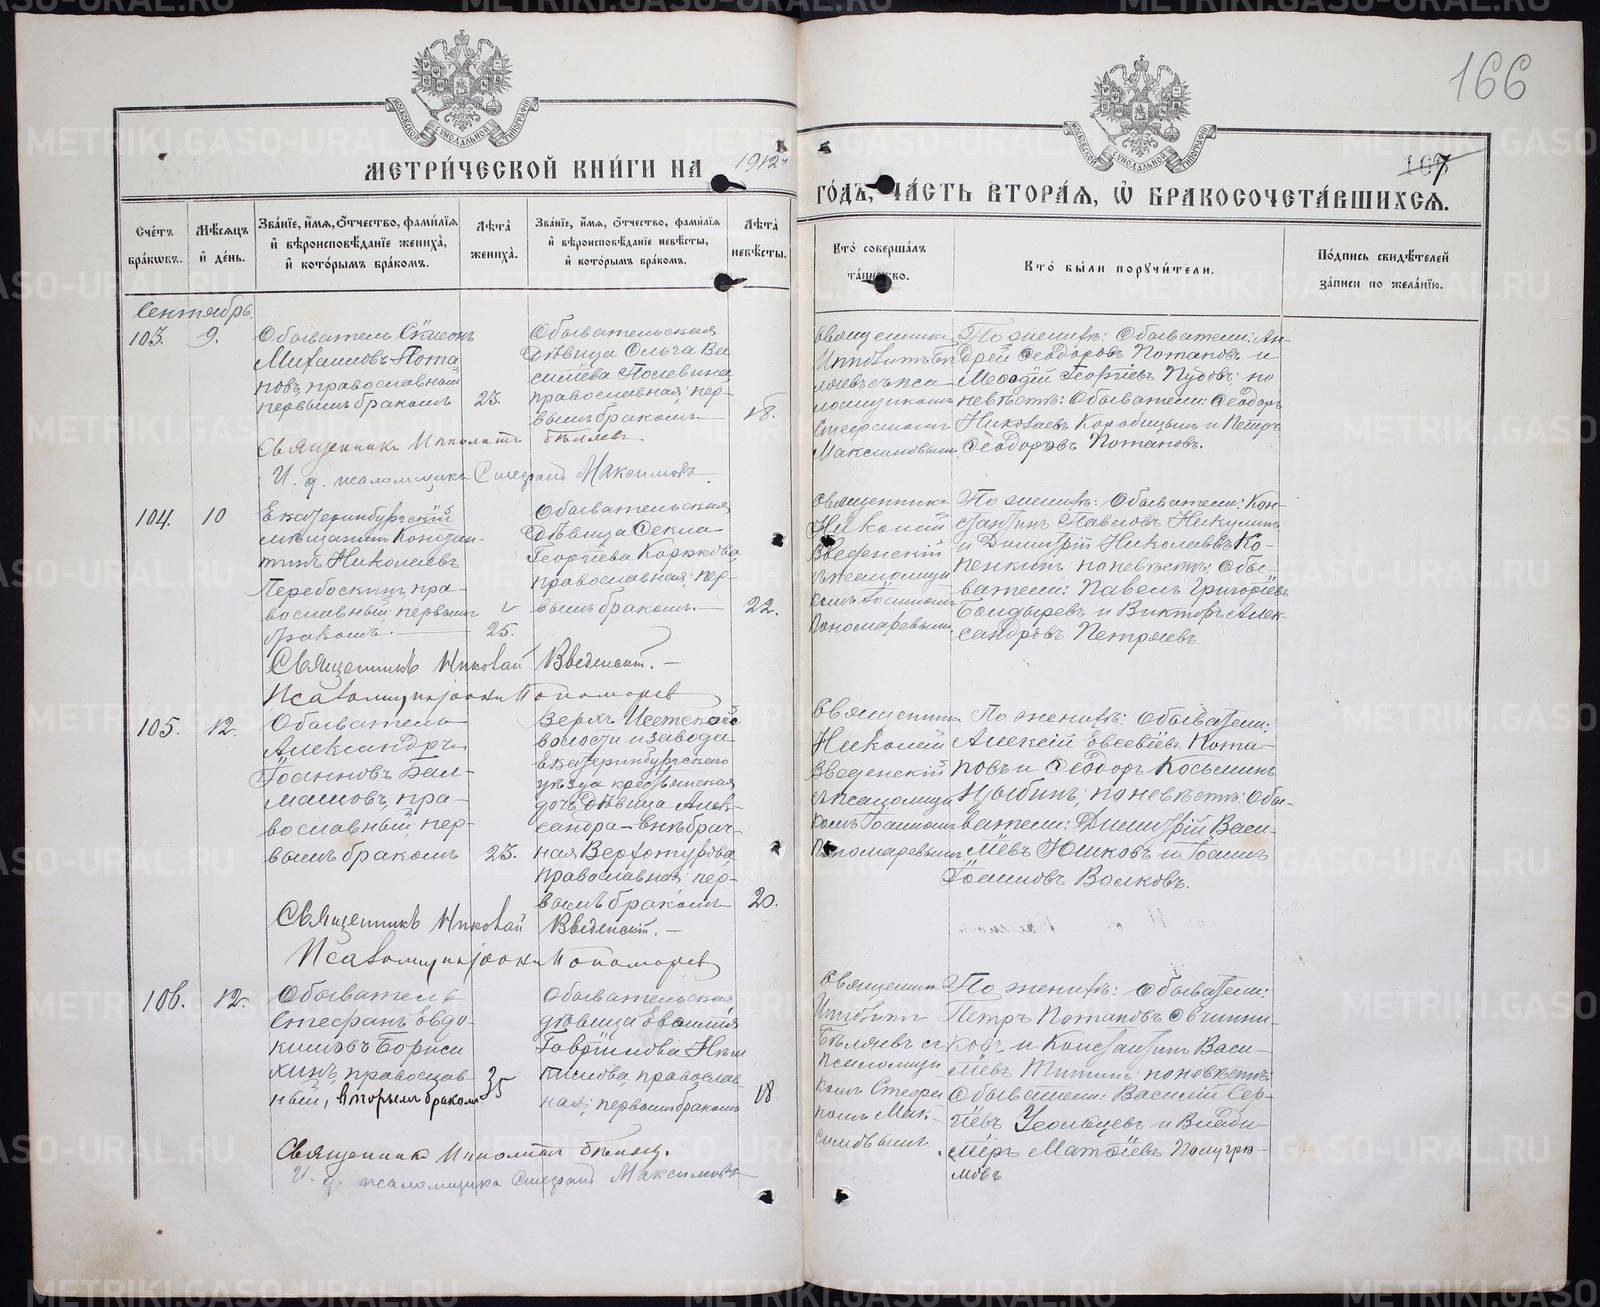 166
167
МОСКОВСКОЙ СѴНОДАЛЬНОЙ ТИПОГРАФІИ
МЕТРИ́ЧЕСКОЙ КНИ́ГИ НА 1912 г.
ГО́ДЪ, ЧА́СТЬ ВТОРА́Я, Ѡ҆ БРАКОСОЧЕТА́ВШИХСЯ.
Сче́тъ бра́кѡвъ.
Мѣ́сяцъ и҆ де́нь.
Зва́нїе, и҆́мя, ѻ҆́тчество, фами́лїя и҆ вѣроисповѣ́данїе жениха̀, и҆ кото́рымъ бра́комъ.
Лѣ́та жениха̀.
Зва́нїе, и҆́мя, ѻ҆́тчество, фами́лїя и҆ вѣроисповѣ́данїе невѣ́сты, и҆ кото́рымъ бра́комъ.
Лѣ́та невѣ́сты.
Кто̀ соверша́лъ та́инство.
Кто̀ бы́ли поручи́тели.
По́дпись свидѣ́телей за́писи по жела́нїю.
Сентябрь.
103.
9.
Обыватель Сѵмеонъ
Михаиловъ Пота
повъ, православный
первымъ бракомъ
23.
Обывательская
дѣвица Ольга Ва
силіева Полевина
православная; пер-
вымъ бракомъ
18.
Священника
Ипполитъ Бѣ
ляевъ съ пса
ломщикомъ
Стефаномъ
Максимовымъ
По женихѣ: Обыватели: Ан-
дрей Ѳеодоровъ Потаповъ и
Меѳодій Георгіевъ Пудовъ; по
невѣстѣ: Обыватели: Ѳеодоръ
Николаевъ Коробицынъ и Петръ
Ѳеодоровъ Потаповъ.
Священникъ Ипполитъ Бѣляевъ
И. д. псаломщика Стефанъ Максимовъ.
104.
10
Екатеринбургскій
мѣщанинъ Констан-
тинъ Николаевъ
Перебоскинъ пра-
вославный, первымъ
бракомъ.
25.
Обывательская
дѣвица Ѳекла
Георгіева Коржкова
православная; пер-
вымъ бракомъ.
22.
Священника
Николай
Введенскій
съ псаломщи
комъ Іоанномъ
Пономаревымъ
По женихѣ: Обыватели: Кон-
стантинъ Павловъ Никулинъ
и Димитрій Николаевъ Ко-
пенкинъ; по невѣстѣ: Обы-
ватели: Павелъ Григорьевъ
Болдыревъ и Викторъ Алек-
сандровъ Петряевъ.
Священникъ Николай Введенскій.
Псаломщикъ Іоаннъ Пономаревъ
105.
12.
Обыватель
Александръ
Іоанновъ Бал-
машовъ, пра-
вославный, пер-
вымъ бракомъ
23.
Верхъ-Исетской
волости и завода
Екатеринбургскаго
уѣзда крестьянская
дочь дѣвица Алек-
сандра Внѣбрач-
ная Верхотурова
православная; пер-
вымъ бракомъ
20.
Священника
Николай
Введенскій
съ псаломщи
комъ Іоанномъ
Пономаревымъ
По женихѣ: Обыватели:
Алексій Евсевіевъ Пота-
повъ и Ѳеодоръ Косьминъ
Цыбинъ; по невѣстѣ: Обы-
ватели: Димитрій Васи-
ліевъ Юшковъ и Іоаннъ
Іоанновъ Волковъ.
Священникъ Николай Введенскій.
Псаломщикъ Іоаннъ Пономаревъ
106.
12.
Обыватель
Стефанъ Евдо-
кимовъ Бориси
хинъ, православ-
ный, вторымъ бракомъ
35
Обывательская
дѣвица Евѳимія
Гавріилова
православ
ная; первымъ бракомъ
18
Священник
Ипполитъ
Бѣляевъ съ
псаломщи
комъ Стефа
номъ Мак-
симовымъ.
По женихѣ: Обыватели:
Петръ Потаповъ Овчинни-
ковъ и Константинъ Васи-
ліевъ Титинъ; по невѣстѣ:
Обыватели: Василій Сер-
гіевъ и Влади-
міръ Матѳіевъ
мовъ
Священника Ипполитъ Бѣляевъ.
И. д. псаломщика Стефанъ Максимовъ
METRIKI.GASO-URAL.RU